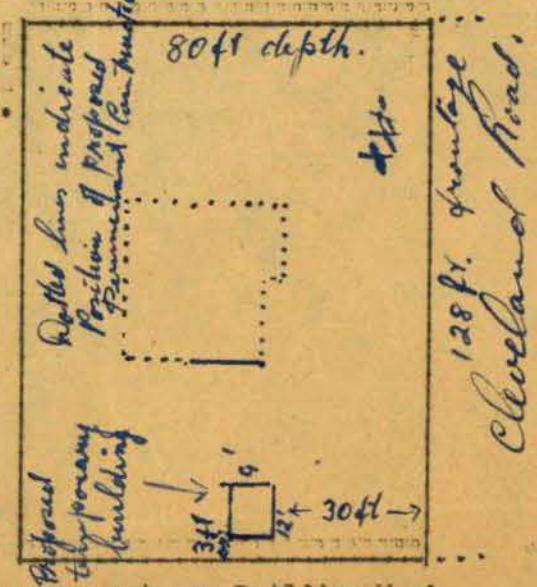 80ft depth.
Dotted lines indicate
Position of Proposed
Permanent Construction
128 ft. frontage
Cleveland Road.
Proposed
temporary
building
9'
3ft
12'
← 30ft →